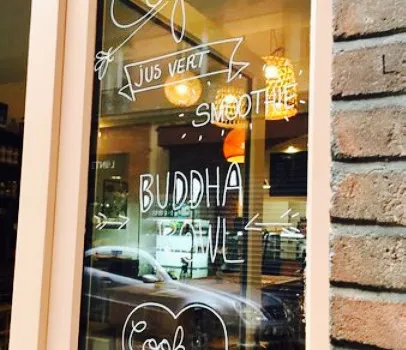 JUS VERT
SMOOTHIE
BUDDHA
BOWL